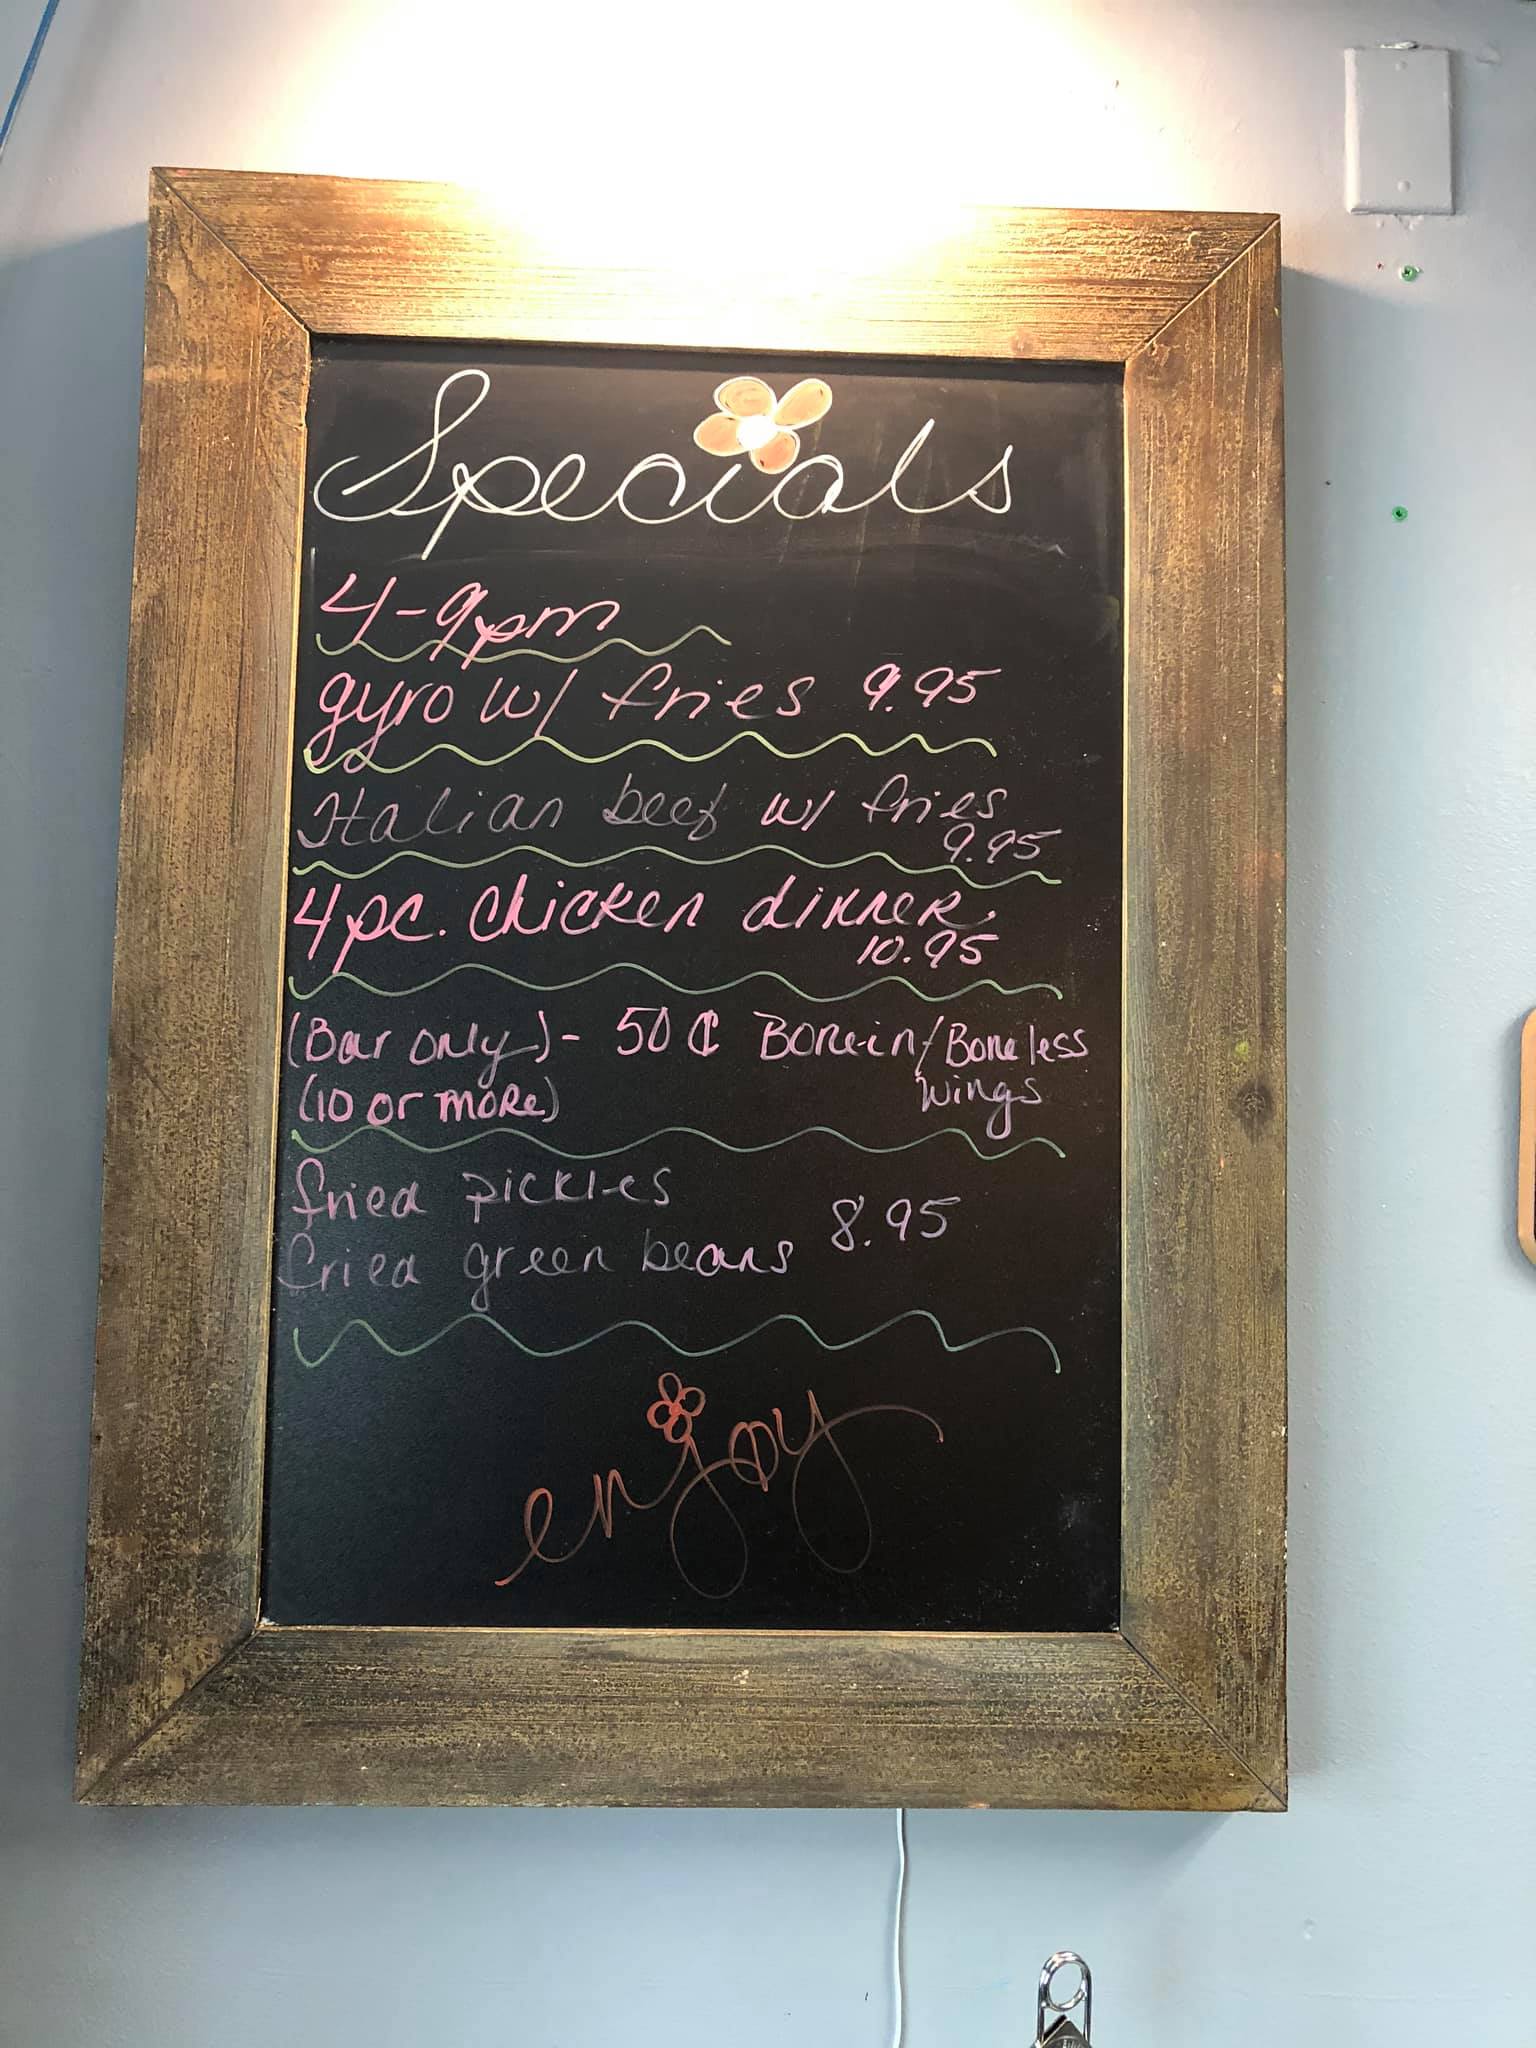 Specials
4-9pm
gyro w/ fries 9.95
Italian beef w/ fries
9.95
4 pc. chicken dinner.
10.95
(Bar only) - 50¢ Bone-in/Boneless
(10 or more) wings
fried pickles
fried green beans 8.95
enjoy